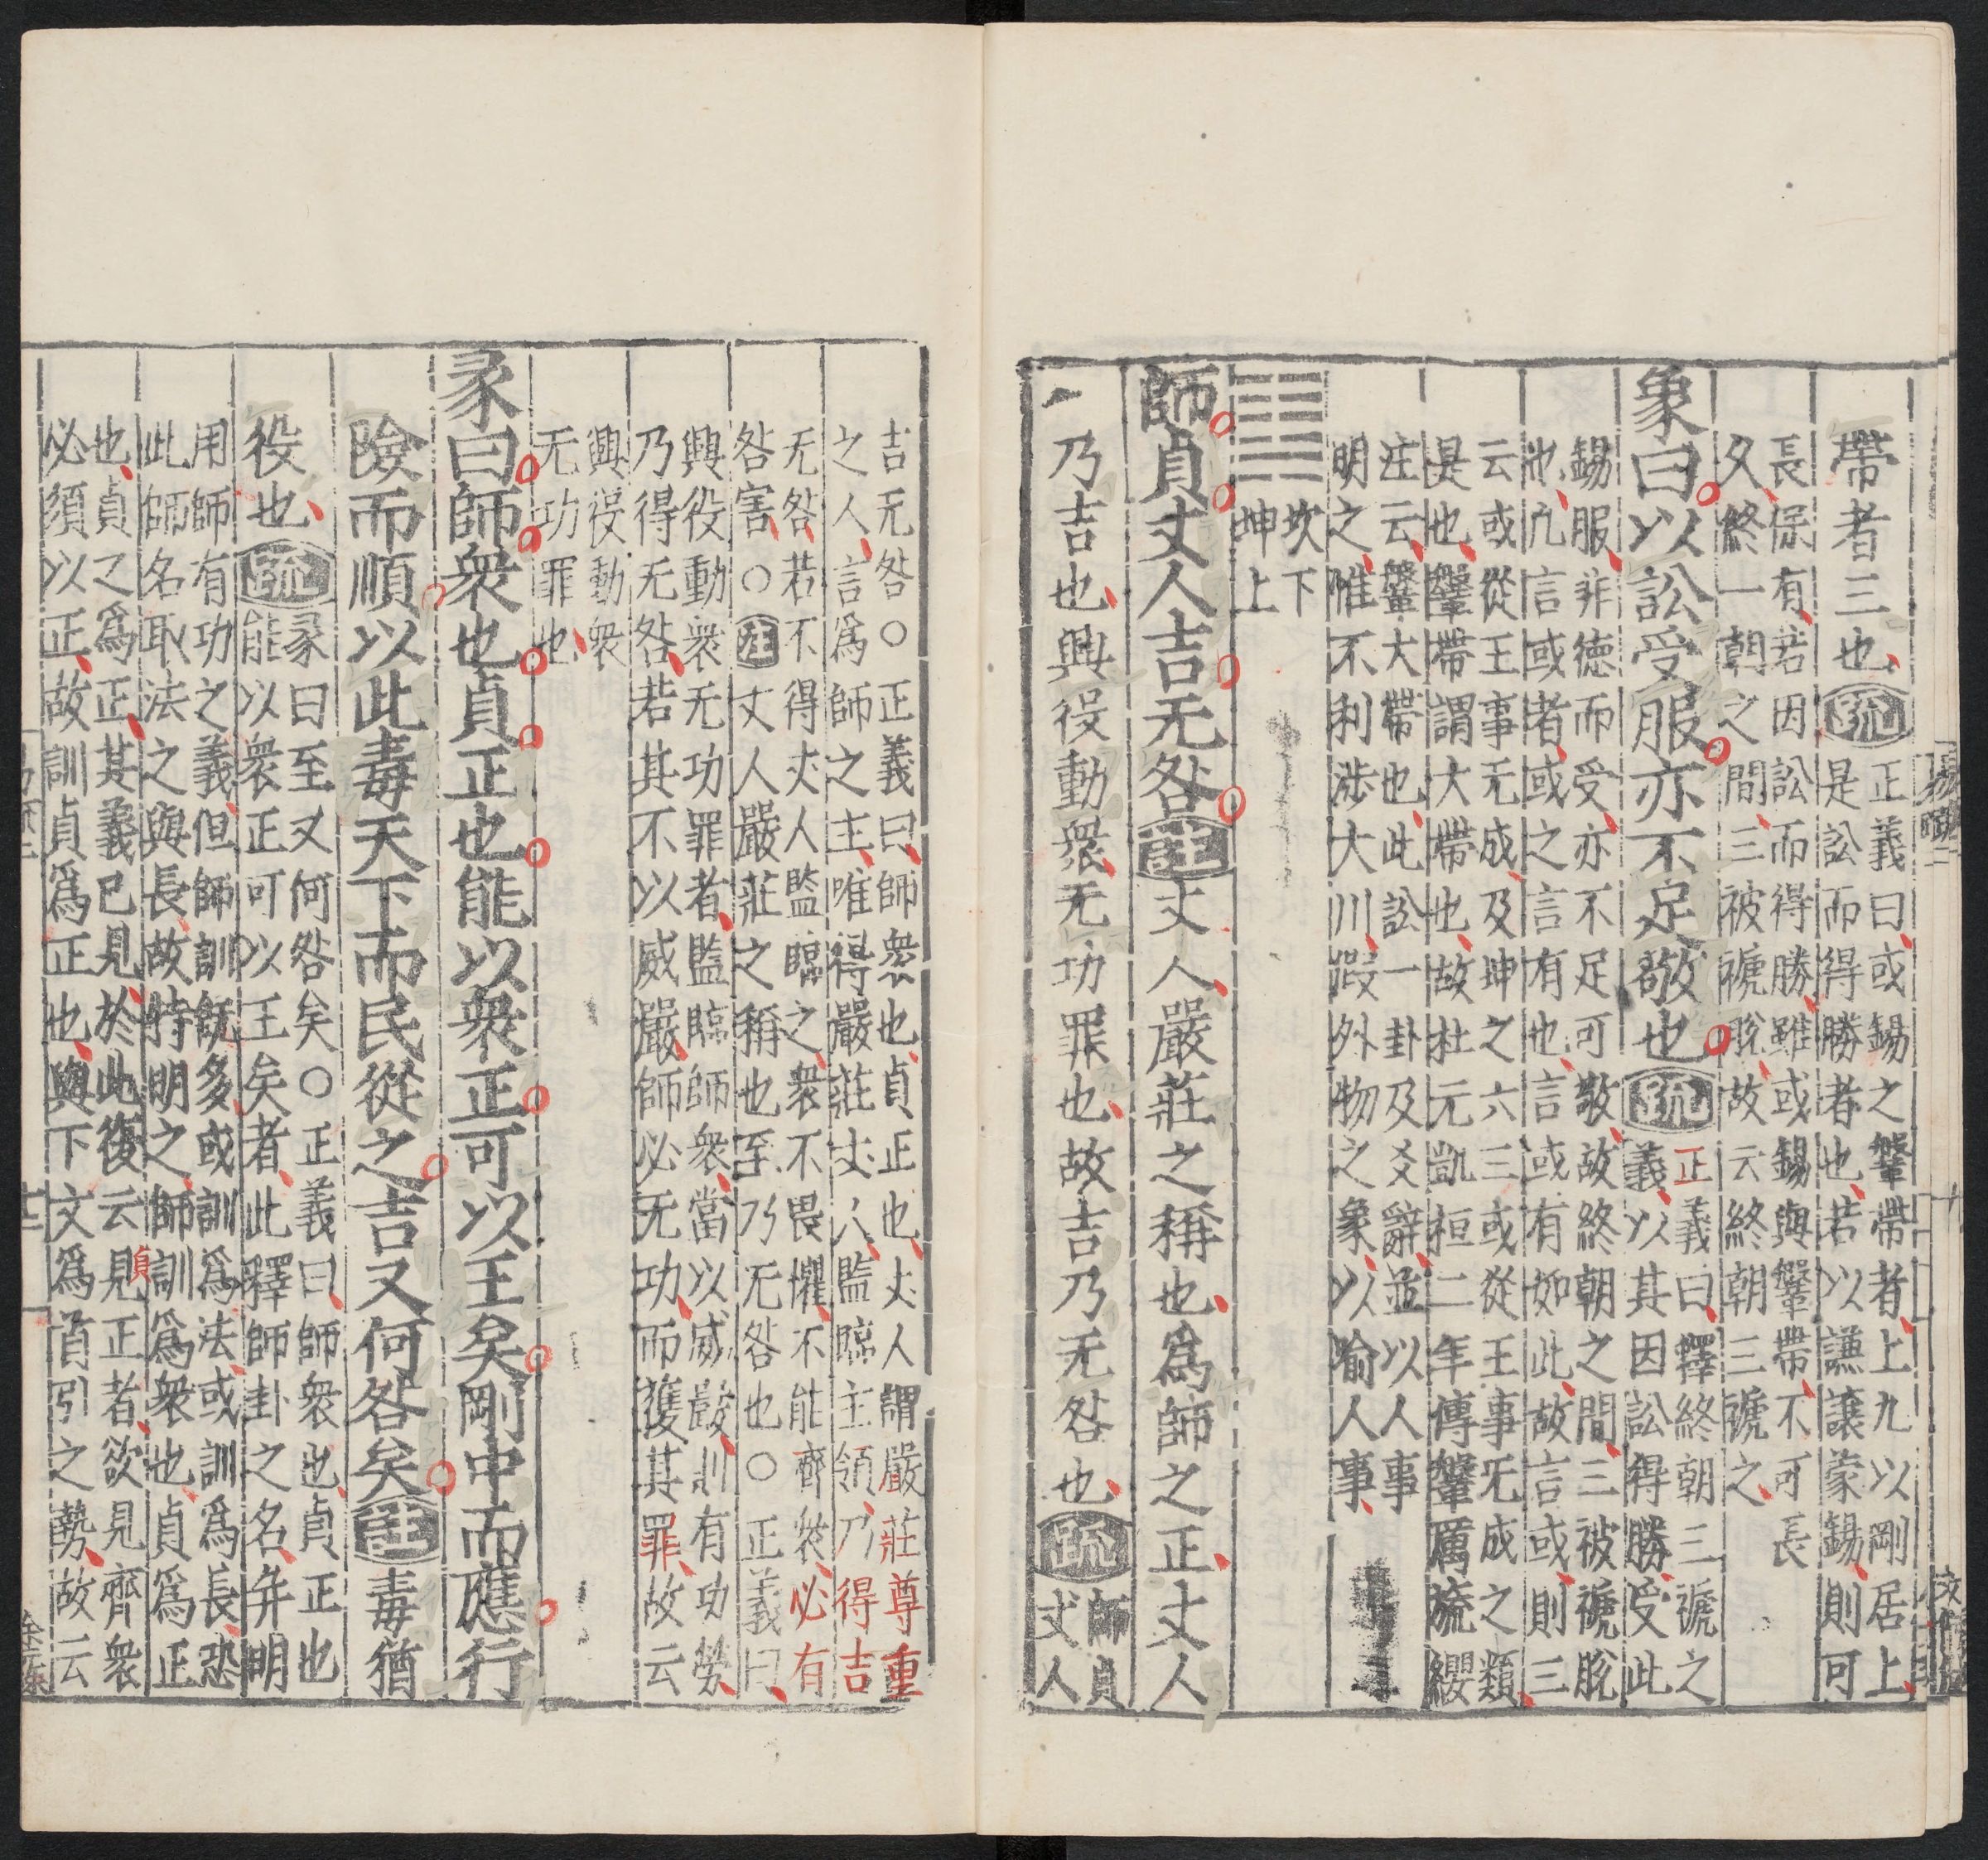 帶者三也疏
正義曰或錫之鞶帶者上九以剛居上
是訟而得勝者也若以謙讓蒙錫則可
長保有若因訟而得勝雖或錫與鞶帶不可長
久終一朝之間三被褫脫故云終朝三褫之
象曰以訟受服亦不足敬也疏
正義曰釋終朝三褫之
義以其因訟得勝受此
錫服非德而受亦不足可敬故終朝之間三被褫脫
也凢言或者或之言有也言或有如此故言或則三
云或從王事无成及坤之六三或從王事旡成之類
是也鞶帶謂大帶也故杜元凱桓二年傳鞶厲旒纓
注云鞶大帶也此訟一卦及爻辭並以人事
明之惟不利涉大川假外物之象以喻人事
䷆
坎下
坤上
師貞丈人吉无咎註丈人嚴莊之稱也爲師之正丈人
乃吉也興役動衆无功罪也故吉乃无咎也疏
師貞
丈人
吉无咎○正義曰師衆也貞正也丈人謂嚴莊尊重
之人言爲師之主唯得嚴莊丈人監臨主領乃得吉
无咎若不得丈人監臨之衆不畏懼不能齊衆必有
咎害○註丈人嚴莊之稱也至乃无咎也○正義曰
興役動衆无功罪者監臨師衆當以威嚴則有功勞
乃得无咎若其不以威嚴師必无功而獲其罪故云
興役動衆
无功罪也
彖曰師衆也貞正也能以衆正可以王矣剛中而應行
險而順以此毒天下而民從之吉又何咎矣註毒猶
役也疏
彖曰至又何咎矣○正義曰師衆也貞正也
能以衆正可以王矣者此釋師卦之名并明
用師有功之義但師訓旣多或訓爲法或訓爲長恐
此師名取法之與長故特明之師訓爲衆也貞爲正
也貞之爲正其義已見於此復云見貞正者欲見齊衆
必須以正故訓貞爲正也與下文爲首引之勢故云